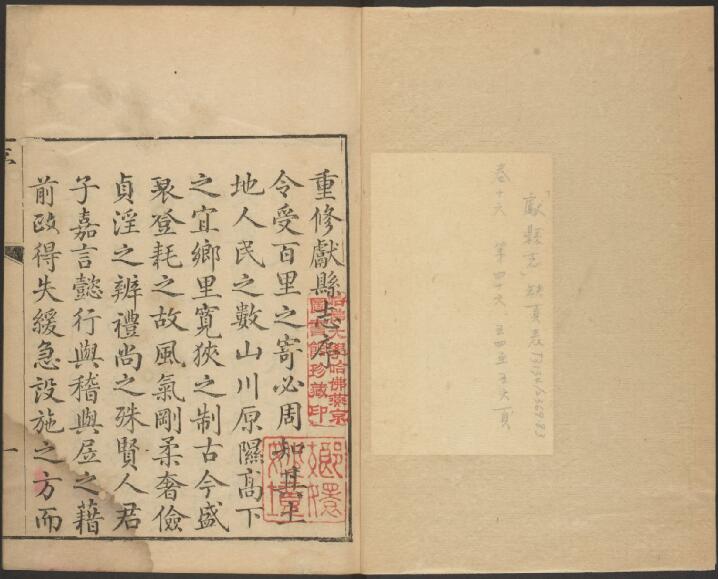 「獻縣志」缺頁表
卷十六 第四十六
重修獻縣志序
令受百里之寄必周知其土
地人民之數山川原隰高下
之宜鄉里寬狹之制古今盛
衰登耗之故風氣剛柔奢儉
貞淫之辨禮尚之殊賢人君
子嘉言懿行與稽與居之藉
前政得失緩急設施之方而
哈佛大學哈佛燕京
圖書館珍藏印
一